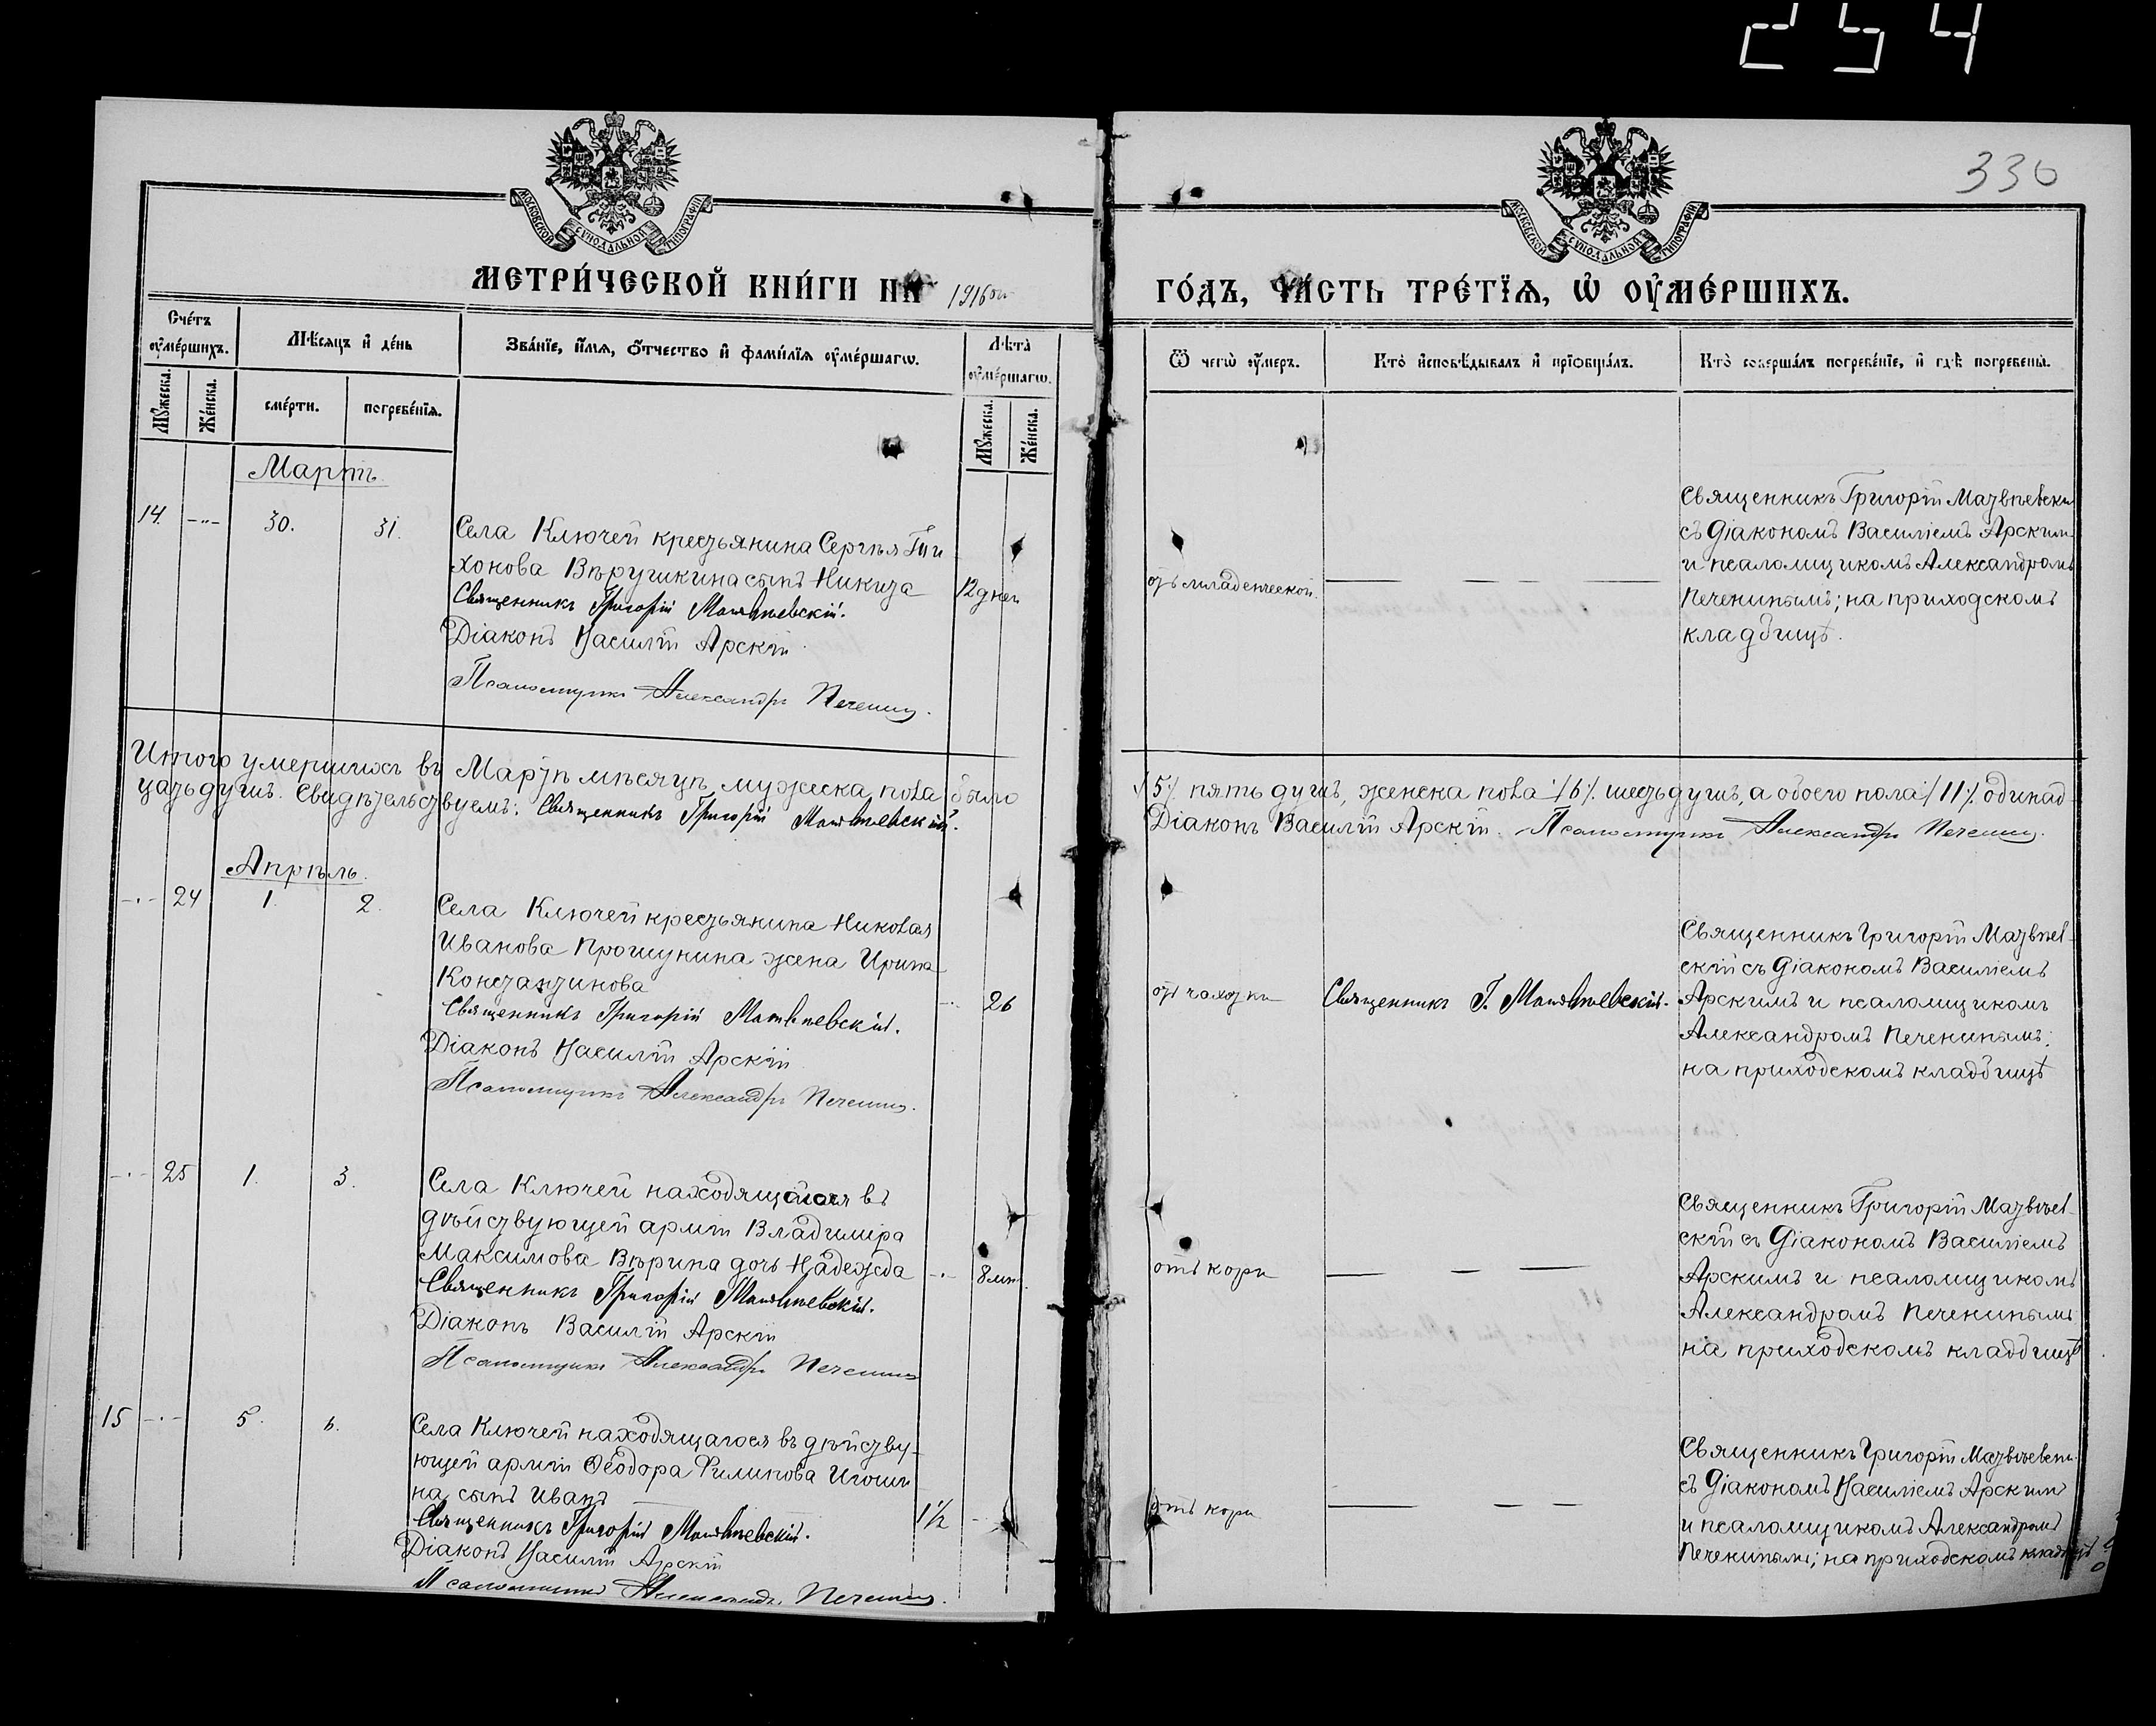 254
336
МОСКОВСКОЙ СѴНОДАЛЬНОЙ ТИПОГРАФІИ
МОСКОВСКОЙ СѴНОДАЛЬНОЙ ТИПОГРАФІИ
МЕТРИ́ЧЕСКОЙ КНИ́ГИ НА 1916ый
ГО́ДЪ, ЧА́СТЬ ТРЕ́ТЇѦ, Ѡ҆ ОУ҆МЕ́РШИХЪ.
Сче́тъ оу҆ме́ршихъ.
Мꙋ́жеска.
Же́нска.
Мѣ́сяцъ и҆ де́нь
сме́рти.
погребе́нїѧ.
Зва́нїе, и҆́мѧ, ѻ҆́тчество и҆ фами́лїѧ оу҆ме́ршагѡ.
Лѣ́та оу҆ме́ршагѡ.
Мꙋ́жеска.
Же́нска.
Ѿ чегѡ̀ оу҆́меръ.
Кто̀ и҆сповѣ́дывалъ и҆ прїѻбща́лъ.
Кто̀ соверша́лъ погребе́нїе, и҆ гдѣ̀ погребены̀.
Мартъ.
14. -"- 30. 31.
Села Ключей крестьянина Сергѣя Ти
хонова Вѣрушкина сынъ Никита
12 дней
Священникъ Григорій Матвѣевскій.
Діаконъ Василій Арскій.
Псаломщикъ Александръ Печенинъ.
отъ младенческой.
Священникъ Григорій Матвѣевски
съ діакономъ Василіемъ Арским
и псаломщикомъ Александромъ
Печенинымъ; на приходскомъ
кладбищѣ.
Итого умершихъ въ Мартѣ мѣсяцѣ мужеска пола было /5/ пять душъ, женска пола /6/ шесть душъ, а обоего пола /11/ одинад-
цать душъ. Свидѣтельствуемъ: Священникъ Григорій Матвѣевскій. Діаконъ Василій Арскій. Псаломщикъ Александръ Печенинъ.
Апрѣль.
-"- 24 1. 2.
Села Ключей крестьянина Николая
Иванова Прошунина жена Ирина
Константинова
-"- 26
Священникъ Григорій Матвѣевскій.
Діаконъ Василій Арскій
Псаломщикъ Александръ Печенинъ.
отъ чахотки
Священникъ Г. Матвѣевскій.
Священникъ Григорій Матвѣев-
скій съ діакономъ Василіемъ
Арскимъ и псаломщикомъ
Александромъ Печенинымъ;
на приходскомъ кладбищѣ
-"- 25 1. 3.
Села Ключей находящагося въ
дѣйствующей арміи Владиміра
Максимова Вѣрина дочь Надежда
-"- 8 мѣс.
Священникъ Григорій Матвѣевскій.
Діаконъ Василій Арскій
Псаломщикъ Александръ Печенинъ
отъ кори
Священникъ Григорій Матвѣев-
скій съ діакономъ Василіемъ
Арскимъ и псаломщикомъ
Александромъ Печенинымъ
на приходскомъ кладбищѣ
15 -"- 5. 6.
Села Ключей находящагося въ дѣйству-
ющей арміи Ѳеодора Филипова Игоши
на сынъ Иванъ
1½ -"-
Священникъ Григорій Матвѣевскій.
Діаконъ Василій Арскій
Псаломщикъ Александръ Печенинъ.
отъ кори
Священникъ Григорій Матвѣевски
съ діакономъ Василіемъ Арским
и псаломщикомъ Александромъ
Печенинымъ; на приходскомъ кладбищѣ